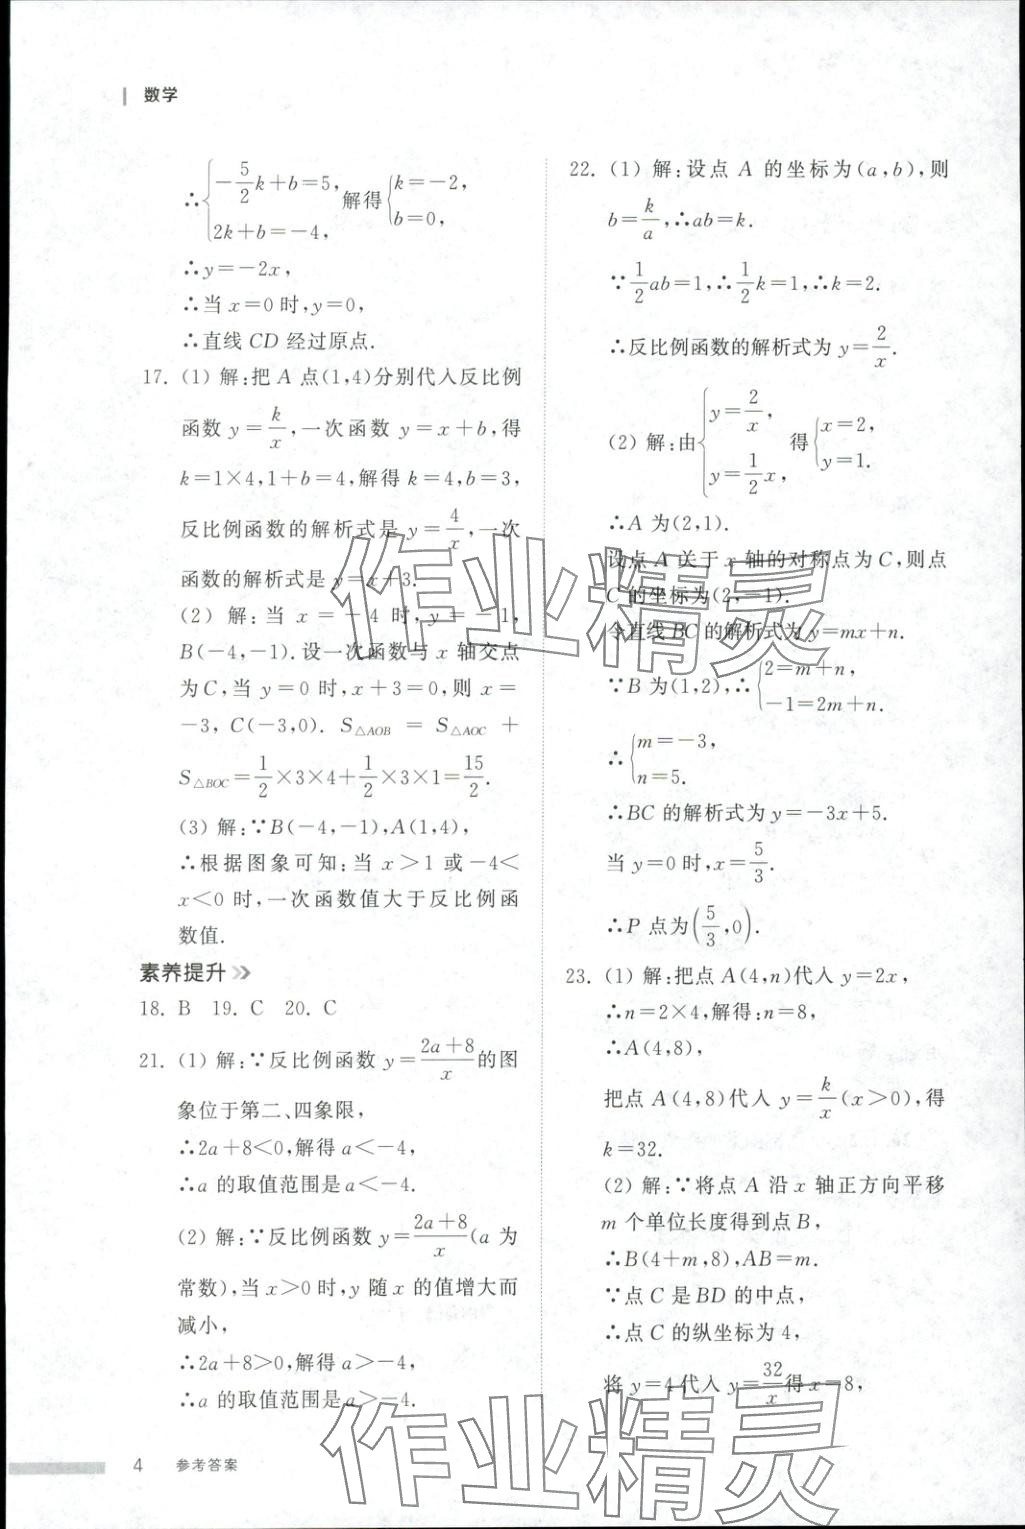 数学
∴{-5/2k+b=5, 2k+b=-4, 解得{k=-2, b=0,
∴y=-2x,
∴当 x=0 时,y=0,
∴直线 CD 经过原点.
17. (1) 解:把 A 点(1,4)分别代入反比例
函数 y=k/x,一次函数 y=x+b,得
k=1×4,1+b=4,解得 k=4,b=3,
反比例函数的解析式是 y=4/x,一次
函数的解析式是 y=x+3.
(2) 解:当 x=-4 时,y=-1,
B(-4,-1).设一次函数与 x 轴交点
为C,当 y=0 时,x+3=0,则 x=
-3, C(-3,0). S△AOB = S△AOC +
S△BOC=1/2×3×4+1/2×3×1=15/2.
(3) 解:∵B(-4,-1),A(1,4),
∴根据图象可知:当 x>1 或-4<
x<0 时,一次函数值大于反比例函
数值.
素养提升
18. B 19. C 20. C
21. (1) 解:∵反比例函数 y=2a+8/x的图
象位于第二、四象限,
∴2a+8<0,解得 a<-4,
∴a 的取值范围是a<-4.
(2) 解:∵反比例函数 y=2a+8/x(a 为
常数),当 x>0 时,y 随 x 的值增大而
减小,
∴2a+8>0,解得 a>-4,
∴a 的取值范围是 a>-4.
22. (1) 解:设点 A 的坐标为(a,b),则
b=k/a,∴ab=k.
∵1/2ab=1,∴1/2k=1,∴k=2.
∴反比例函数的解析式为 y=2/x.
(2) 解:由{y=2/x, y=1/2x, 得{x=2, y=1.
∴A 为(2,1).
设点 A 关于 x 轴的对称点为 C,则点
C 的坐标为(2,-1).
令直线 BC 的解析式为 y=mx+n.
∵B 为(1,2),∴{2=m+n, -1=2m+n.
∴{m=-3, n=5.
∴BC 的解析式为 y=-3x+5.
当 y=0 时,x=5/3.
∴P 点为(5/3,0).
23. (1) 解:把点 A(4,n)代入 y=2x,
∴n=2×4,解得:n=8,
∴A(4,8),
把点 A(4,8)代入 y=k/x(x>0),得
k=32.
(2) 解:∵将点 A 沿 x 轴正方向平移
m 个单位长度得到点 B,
∴B(4+m,8),AB=m.
∵点 C 是 BD 的中点,
∴点 C 的纵坐标为 4,
将 y=4 代入 y=32/x得 x=8,
作业精灵
作业精灵
4 参考答案